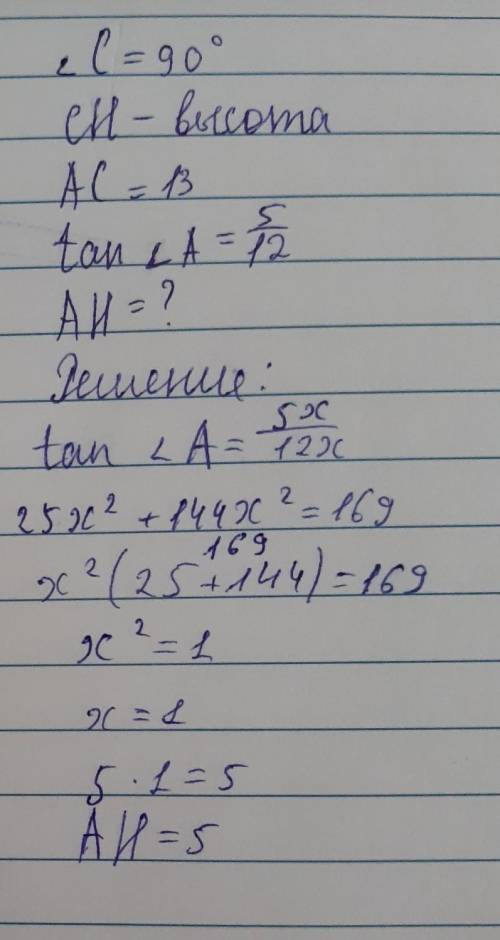 ∠C = 90°
CH – высота
AC = 13
tan ∠A = 5/12
AH = ?
Решение:
tan ∠A = 5x/12x
25x² + 144x² = 169
169
x²(25 + 144) = 169
x² = 1
x = 1
5 · 1 = 5
AH = 5